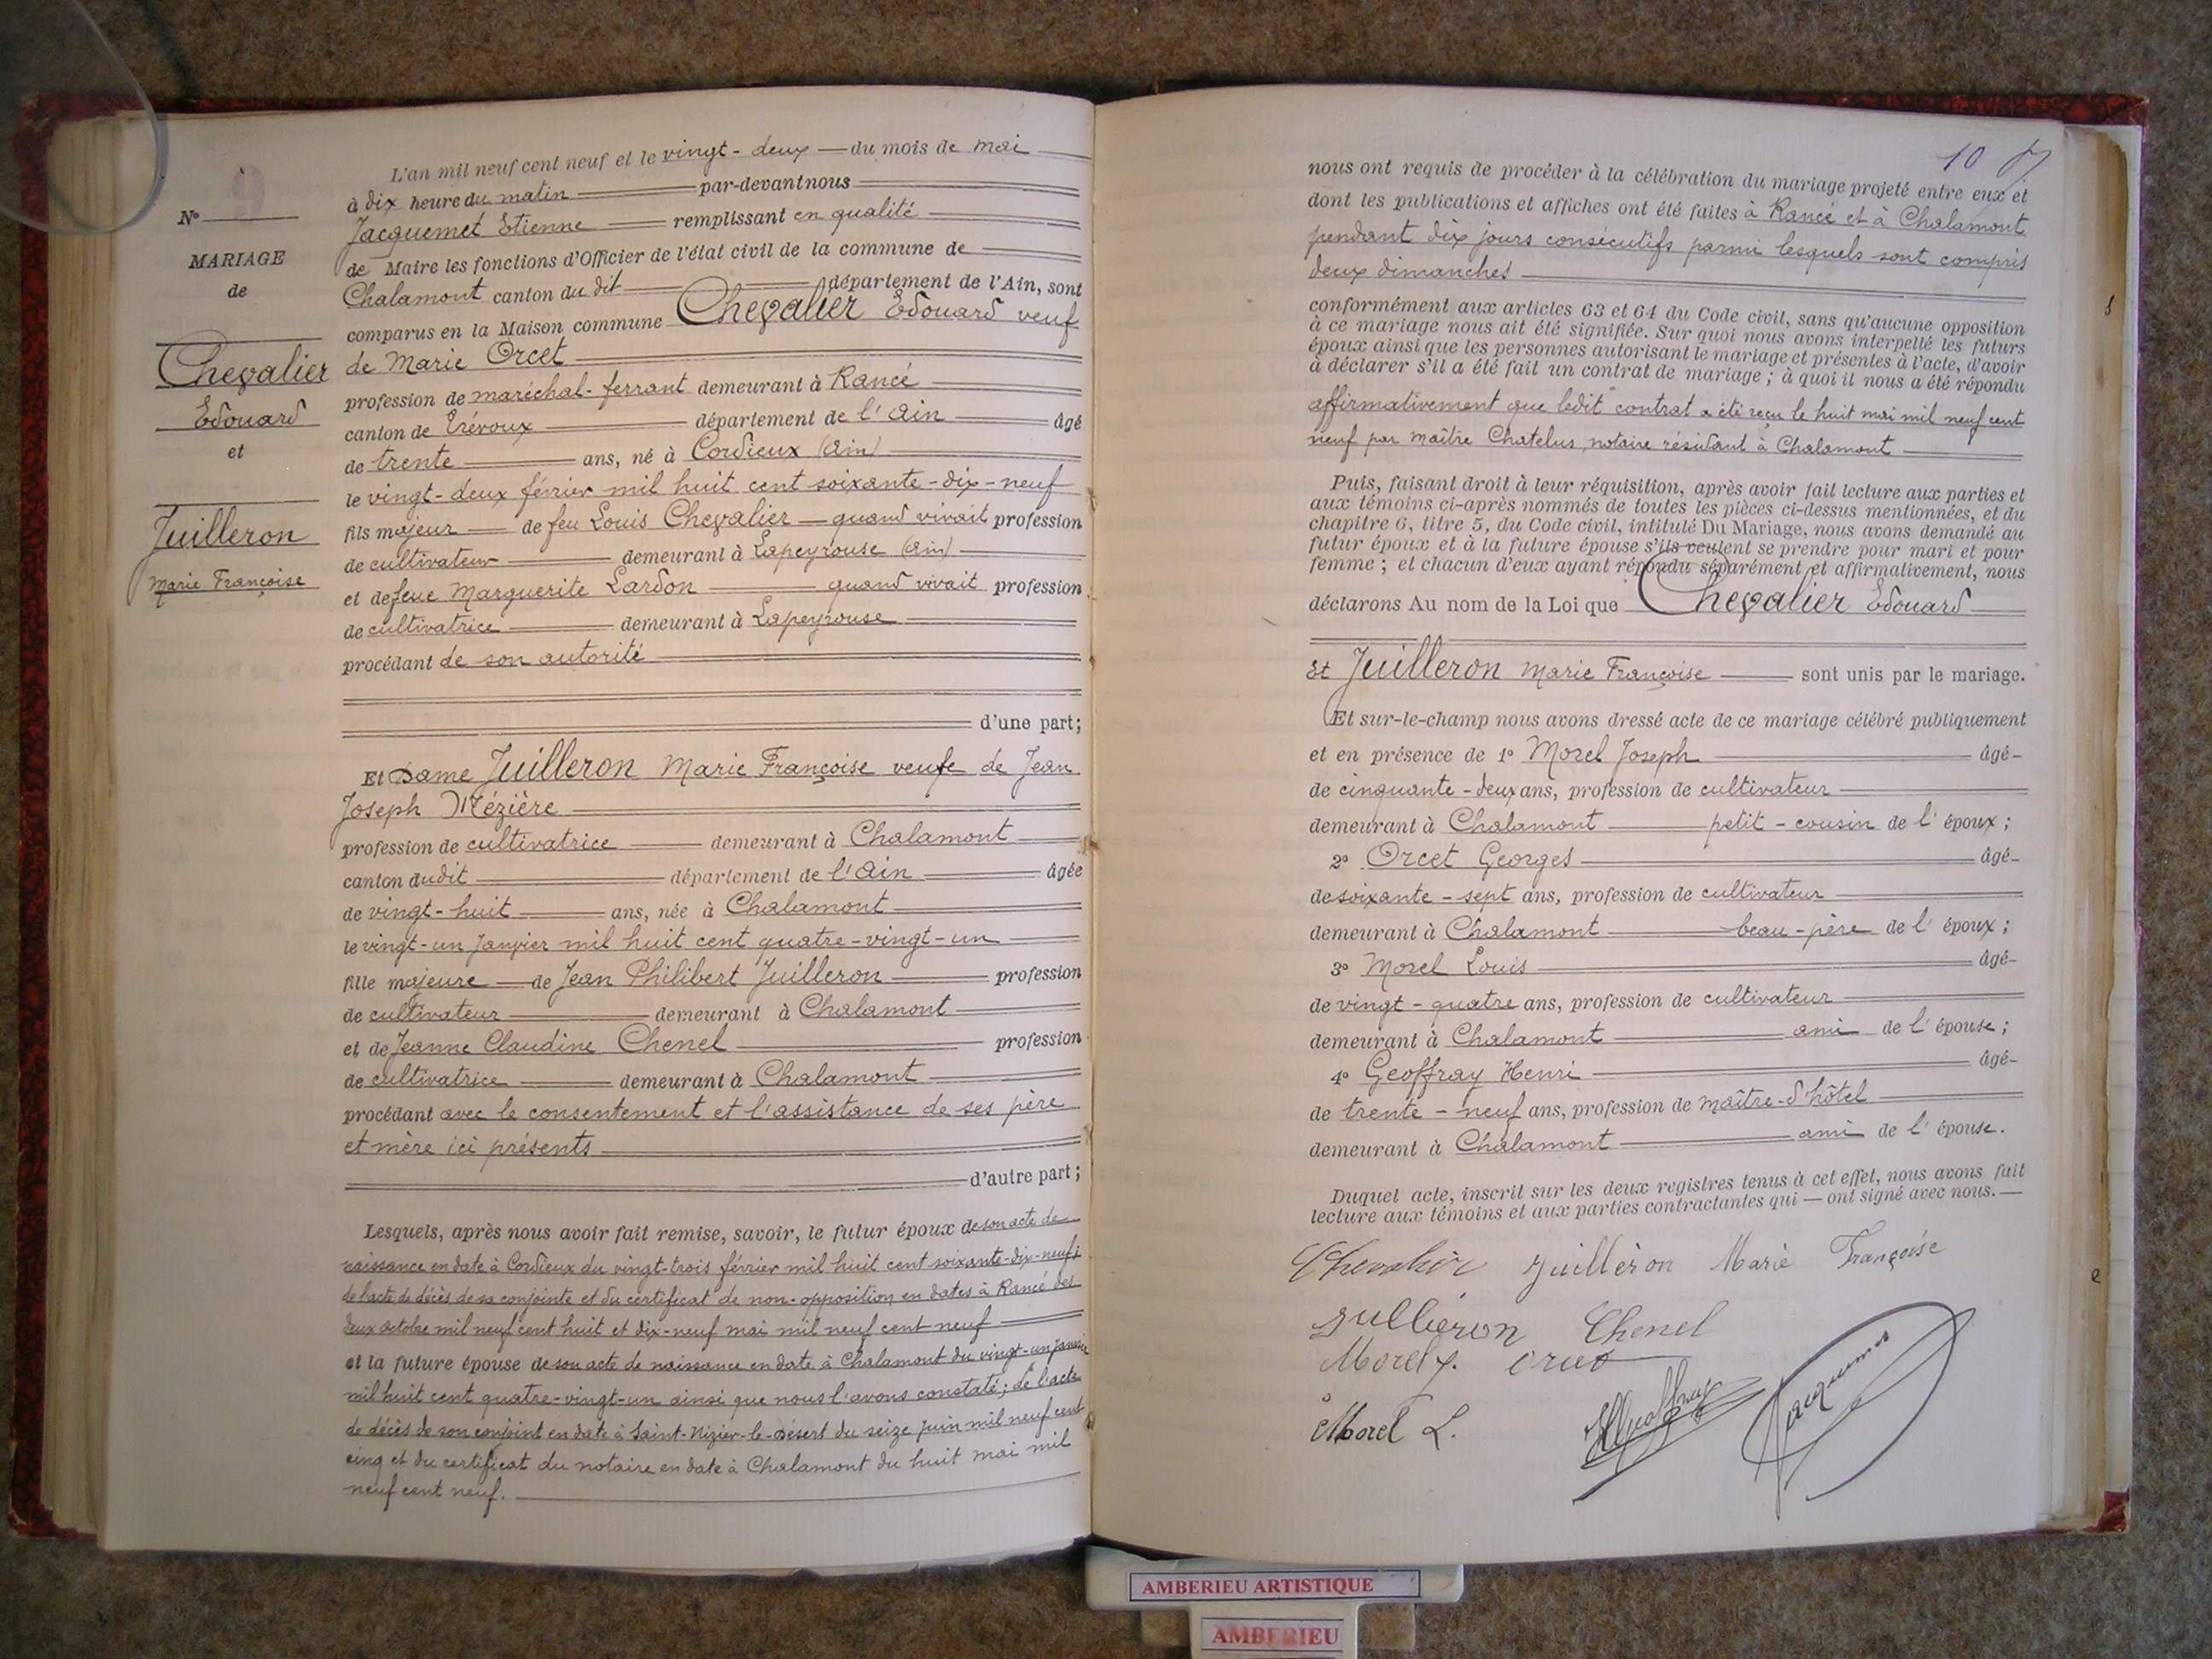 9
N°
MARIAGE
de
Chevalier
Edouard
et
Juilleron
Marie Françoise
L'an mil neuf cent neuf et le vingt-deux du mois de mai
à dix heure du matin par-devant nous
Jacquemet Etienne remplissant en qualité
de Maire les fonctions d'Officier de l'état civil de la commune de
Chalamont canton du dit département de l'Ain, sont
comparus en la Maison commune Chevalier Edouard veuf
de Marie Orcet
profession de maréchal-ferrant demeurant à Rancé
canton de Trévoux département de l'Ain âgé
de trente ans, né à Cordieux (Ain)
le vingt-deux février mil huit cent soixante-dix-neuf
fils majeur de feu Louis Chevalier quand vivait profession
de cultivateur demeurant à Lapeyrouse (Ain)
et de feue Marguerite Lardon quand vivait profession
de cultivatrice demeurant à Lapeyrouse
procédant de son autorité
d'une part;
Et Dame Juilleron Marie Françoise veuve de Jean
Joseph Mézière
profession de cultivatrice demeurant à Chalamont
canton dudit département de l'Ain âgée
de vingt-huit ans, née à Chalamont
le vingt-un janvier mil huit cent quatre-vingt-un
fille majeure de Jean Philibert Juilleron profession
de cultivateur demeurant à Chalamont
et de Jeanne Claudine Chenel profession
de cultivatrice demeurant à Chalamont
procédant avec le consentement et l'assistance de ses père
et mère ici présents
d'autre part;
Lesquels, après nous avoir fait remise, savoir, le futur époux de son acte de
naissance en date à Cordieux du vingt-trois février mil huit cent soixante-dix-neuf;
de l'acte de décès de sa conjointe et du certificat de non-opposition en dates à Rancé des
deux octobre mil neuf cent huit et dix-neuf mai mil neuf cent neuf
et la future épouse de son acte de naissance en date à Chalamont du vingt-un janvier
mil huit cent quatre-vingt-un ainsi que nous l'avons constaté; de l'acte
de décès de son conjoint en date à Saint-Nizier-le-Désert du seize juin mil neuf cent
cinq et du certificat du notaire en date à Chalamont du huit mai mil
neuf cent neuf.
10
nous ont requis de procéder à la célébration du mariage projeté entre eux et
dont les publications et affiches ont été faites à Rancé et à Chalamont
pendant dix jours consécutifs parmi lesquels sont compris
deux dimanches
conformément aux articles 63 et 64 du Code civil, sans qu'aucune opposition
à ce mariage nous ait été signifiée. Sur quoi nous avons interpellé les futurs
époux ainsi que les personnes autorisant le mariage et présentes à l'acte, d'avoir
à déclarer s'il a été fait un contrat de mariage; à quoi il nous a été répondu
affirmativement que ledit contrat a été reçu le huit mai mil neuf cent
neuf par maître Chatelus, notaire résidant à Chalamont
Puis, faisant droit à leur réquisition, après avoir fait lecture aux parties et
aux témoins ci-après nommés de toutes les pièces ci-dessus mentionnées, et du
chapitre 6, titre 5, du Code civil, intitulé Du Mariage, nous avons demandé au
futur époux et à la future épouse s'ils veulent se prendre pour mari et pour
femme; et chacun d'eux ayant répondu séparément et affirmativement, nous
déclarons Au nom de la Loi que Chevalier Edouard
Et Juilleron Marie Françoise sont unis par le mariage.
Et sur-le-champ nous avons dressé acte de ce mariage célébré publiquement
et en présence de 1° Morel Joseph âgé
de cinquante-deux ans, profession de cultivateur
demeurant à Chalamont petit-cousin de l'époux;
2° Orcet Georges âgé
de soixante-sept ans, profession de cultivateur
demeurant à Chalamont beau-père de l'époux;
3° Morel Louis âgé
de vingt-quatre ans, profession de cultivateur
demeurant à Chalamont ami de l'épouse;
4° Geoffray Henri âgé
de trente-neuf ans, profession de maître-d'hôtel
demeurant à Chalamont ami de l'épouse.
Duquel acte, inscrit sur les deux registres tenus à cet effet, nous avons fait
lecture aux témoins et aux parties contractantes qui ont signé avec nous.
Chevalier Juilleron Marie Françoise
Juilleron Chenel
Morel J. Orcet
Morel L. HGeoffray Jacquemet
AMBERIEU ARTISTIQUE
AMBERIEU